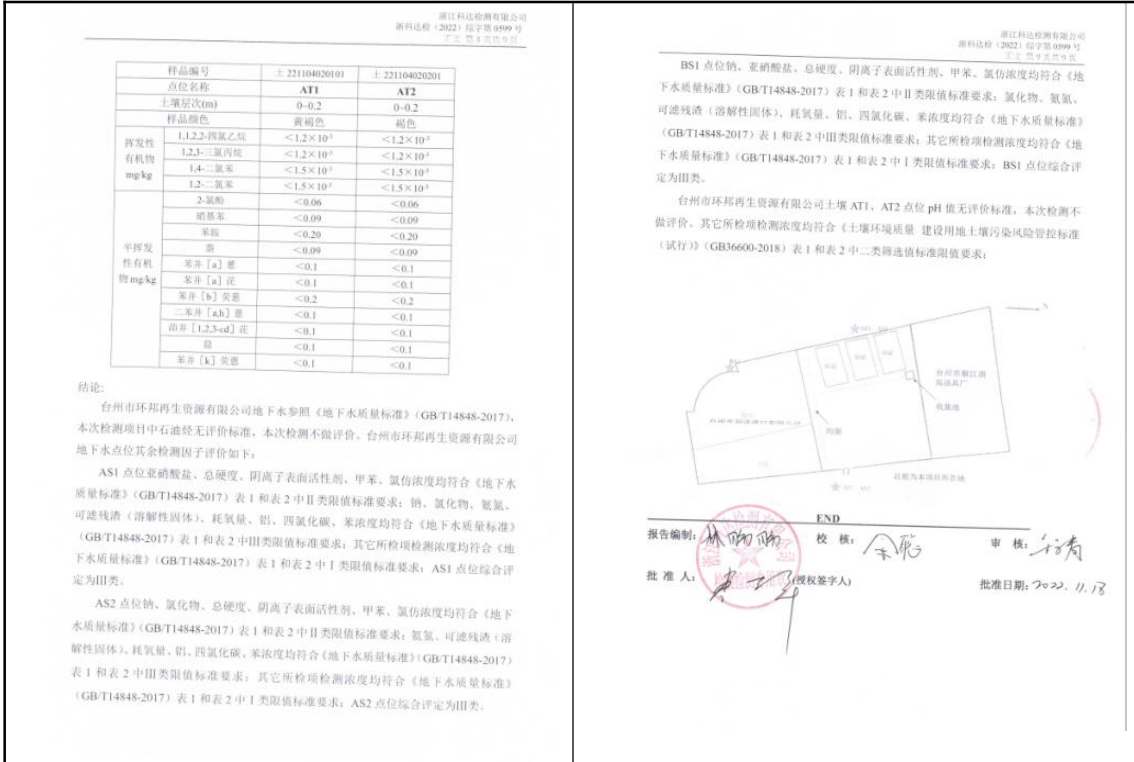 浙江科达检测有限公司
浙科达检（2022）综字第 0599 号
正文 第 8 页共 9 页
样品编号 土 221104020101 土 221104020201
点位名称 AT1 AT2
土壤层次(m) 0~0.2 0~0.2
样品颜色 黄褐色 褐色
挥发性有机物 mg/kg
1,1,2,2-四氯乙烷 ＜1.2×10⁻³ ＜1.2×10⁻³
1,2,3-三氯丙烷 ＜1.2×10⁻³ ＜1.2×10⁻³
1,4-二氯苯 ＜1.5×10⁻³ ＜1.5×10⁻³
1,2-二氯苯 ＜1.5×10⁻³ ＜1.5×10⁻³
半挥发性有机物 mg/kg
2-氯酚 ＜0.06 ＜0.06
硝基苯 ＜0.09 ＜0.09
苯胺 ＜0.20 ＜0.20
萘 ＜0.09 ＜0.09
苯并［a］蒽 ＜0.1 ＜0.1
苯并［a］芘 ＜0.1 ＜0.1
苯并［b］荧蒽 ＜0.2 ＜0.2
二苯并［a,h］蒽 ＜0.1 ＜0.1
茚并［1,2,3-cd］芘 ＜0.1 ＜0.1
䓛 ＜0.1 ＜0.1
苯并［k］荧蒽 ＜0.1 ＜0.1
结论：
台州市环邦再生资源有限公司地下水参照《地下水质量标准》（GB/T14848-2017），
本次检测项目中石油烃无评价标准，本次检测不做评价。台州市环邦再生资源有限公司
地下水点位其余检测因子评价如下：
AS1 点位亚硝酸盐、总硬度、阴离子表面活性剂、甲苯、氯仿浓度均符合《地下水
质量标准》（GB/T14848-2017）表 1 和表 2 中Ⅱ类限值标准要求；钠、氯化物、氨氮、
可滤残渣（溶解性固体）、耗氧量、铝、四氯化碳、苯浓度均符合《地下水质量标准》
（GB/T14848-2017）表 1 和表 2 中Ⅲ类限值标准要求；其它所检项检测浓度均符合《地
下水质量标准》（GB/T14848-2017）表 1 和表 2 中Ⅰ类限值标准要求；AS1 点位综合评
定为Ⅲ类。
AS2 点位钠、氯化物、总硬度、阴离子表面活性剂、甲苯、氯仿浓度均符合《地下
水质量标准》（GB/T14848-2017）表 1 和表 2 中Ⅱ类限值标准要求；氨氮、可滤残渣（溶
解性固体）、耗氧量、铝、四氯化碳、苯浓度均符合《地下水质量标准》（GB/T14848-2017）
表 1 和表 2 中Ⅲ类限值标准要求；其它所检项检测浓度均符合《地下水质量标准》
（GB/T14848-2017）表 1 和表 2 中Ⅰ类限值标准要求；AS2 点位综合评定为Ⅲ类。
浙江科达检测有限公司
浙科达检（2022）综字第 0599 号
正文 第 9 页共 9 页
BS1 点位钠、亚硝酸盐、总硬度、阴离子表面活性剂、甲苯、氯仿浓度均符合《地
下水质量标准》（GB/T14848-2017）表 1 和表 2 中Ⅱ类限值标准要求；氯化物、氨氮、
可滤残渣（溶解性固体）、耗氧量、铝、四氯化碳、苯浓度均符合《地下水质量标准》
（GB/T14848-2017）表 1 和表 2 中Ⅲ类限值标准要求；其它所检项检测浓度均符合《地
下水质量标准》（GB/T14848-2017）表 1 和表 2 中Ⅰ类限值标准要求；BS1 点位综合评
定为Ⅲ类。
台州市环邦再生资源有限公司土壤 AT1、AT2 点位 pH 值无评价标准，本次检测不
做评价。其它所检项检测浓度均符合《土壤环境质量 建设用地土壤污染风险管控标准
（试行）》（GB36600-2018）表 1 和表 2 中二类筛选值标准限值要求；
收集池
沟渠
END
报告编制：
校 核：
审 核：
批 准 人：
(授权签字人)
批准日期：2022. 11. 18